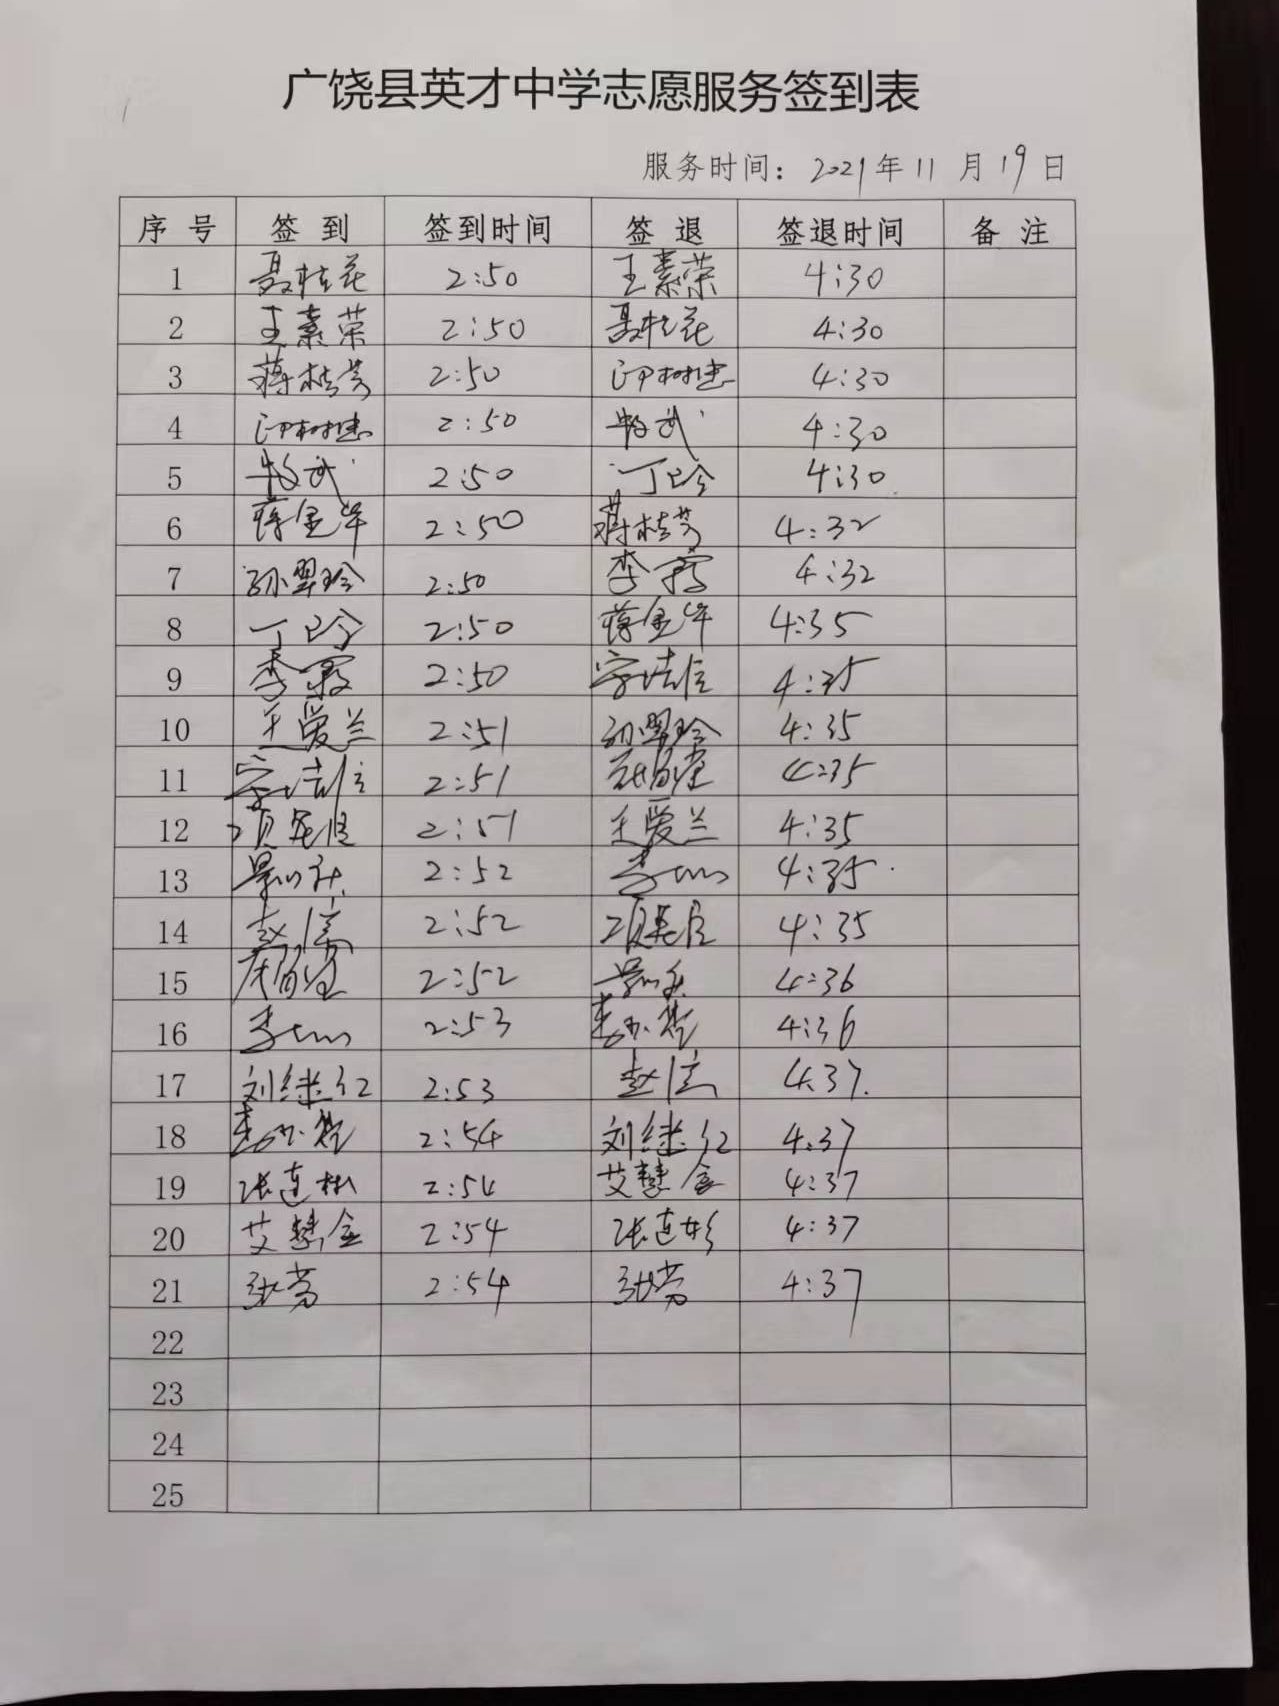 广饶县英才中学志愿服务签到表
服务时间：2021年11月19日
序号 签到 签到时间 签退 签退时间 备注
1 聂桂花 2:50 王素荣 4:30
2 王素荣 2:50 聂桂花 4:30
3 蒋桂芳 2:50 4:30
4 2:50 4:30
5 2:50 丁玲 4:30
6 蒋金华 2:50 蒋桂芳 4:32
7 孙翠玲 2:50 李霞 4:32
8 丁玲 2:50 蒋金华 4:35
9 李霞 2:50 4:35
10 王爱兰 2:51 孙翠玲 4:35
11 2:51 4:35
12 2:51 王爱兰 4:35
13 2:52 4:35
14 赵 2:52 4:35
15 2:52 4:36
16 2:53 4:36
17 刘继红 2:53 赵 4:37
18 2:54 刘继红 4:37
19 张连彬 2:54 艾慧金 4:37
20 艾慧金 2:54 张连彬 4:37
21 张芳 2:54 张芳 4:37
22
23
24
25